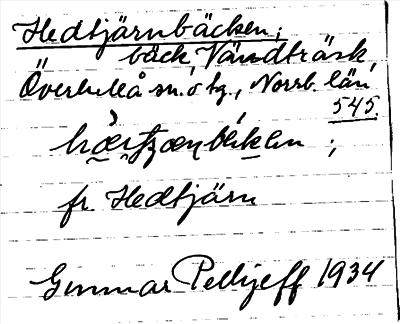 Hedtjärnbäcken;
bäck, Vändträsk,
Överluleå sn. o tg., Norrb. län
545.
fr Hedtjärn
Gunnar Pellijeff 1934